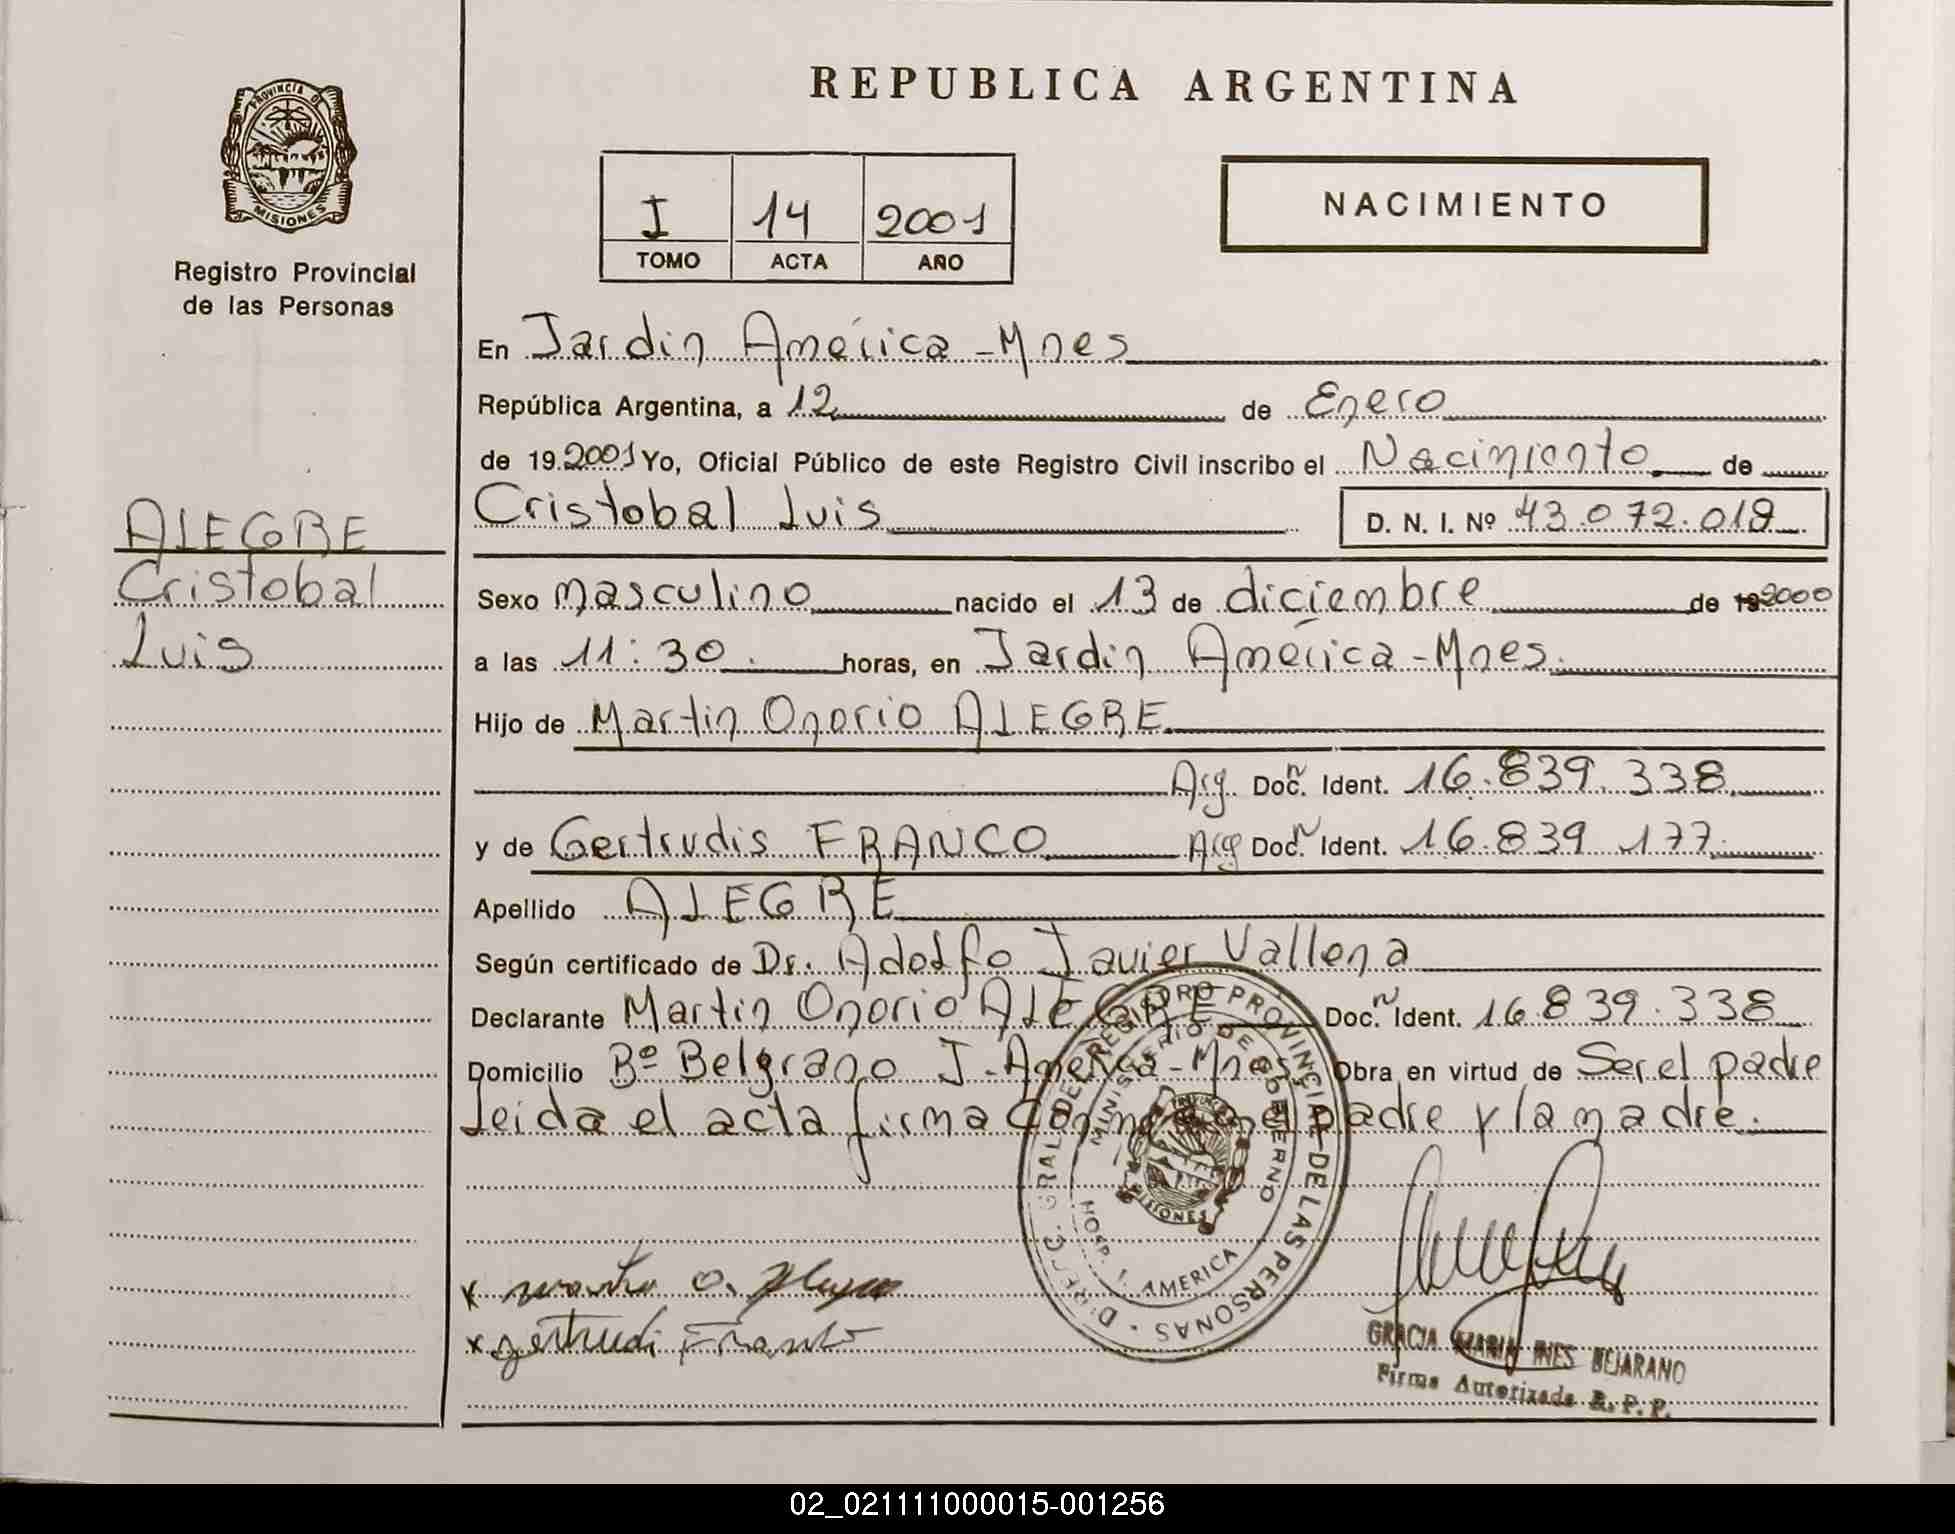 REPUBLICA ARGENTINA
PROVINCIA DE
MISIONES
Registro Provincial
de las Personas
I 14 2001
TOMO ACTA AÑO
NACIMIENTO
En Jardin América - Mnes
República Argentina, a 12 de Enero
de 19 2001 Yo, Oficial Público de este Registro Civil inscribo el Nacimiento de
Cristobal Luis D. N. I. Nº 43.072.019
ALEGRE
Cristobal
Luis
Sexo masculino nacido el 13 de diciembre de 19 2000
a las 11:30 horas, en Jardin América - Mnes.
Hijo de Martin Onorio ALEGRE
Arg. Docn. Ident. 16.839.338
y de Gertrudis FRANCO Arg Docn. Ident. 16.839 177
Apellido ALEGRE
Según certificado de Dr. Adolfo Javier Vallena
Declarante Martin Onorio ALEGRE Docn. Ident. 16.839.338
Domicilio Bº Belgrano J. America - Mnes Obra en virtud de Ser el padre
Leida el acta firma con el padre y la madre.
DIREC. GRAL. DE REGISTRO PROVINCIAL DE LAS PERSONAS
MINISTERIO DE GOBIERNO
PROVINCIA
MISIONES
HOSP. J. AMERICA
x O.
x gertrudi Franco
GRACIA MARIA INES BEJARANO
Firma Autorizada R. P. P.
02_021111000015-001256